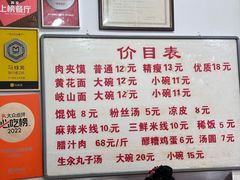 上榜餐厅
大众点评
吃榜
2022
价目表
肉夹馍 普通12元 精瘦13元 优质18元
黄花面 大碗12元 小碗11元
岐山面 大碗12元 小碗11元
馄饨8元 粉丝汤5元 凉皮8元
麻辣米线10元 三鲜米线10元 稀饭5元
腊汁肉 68元/斤 醪糟鸡蛋6元 汤圆7元
生汆丸子汤 大碗20元 小碗15元